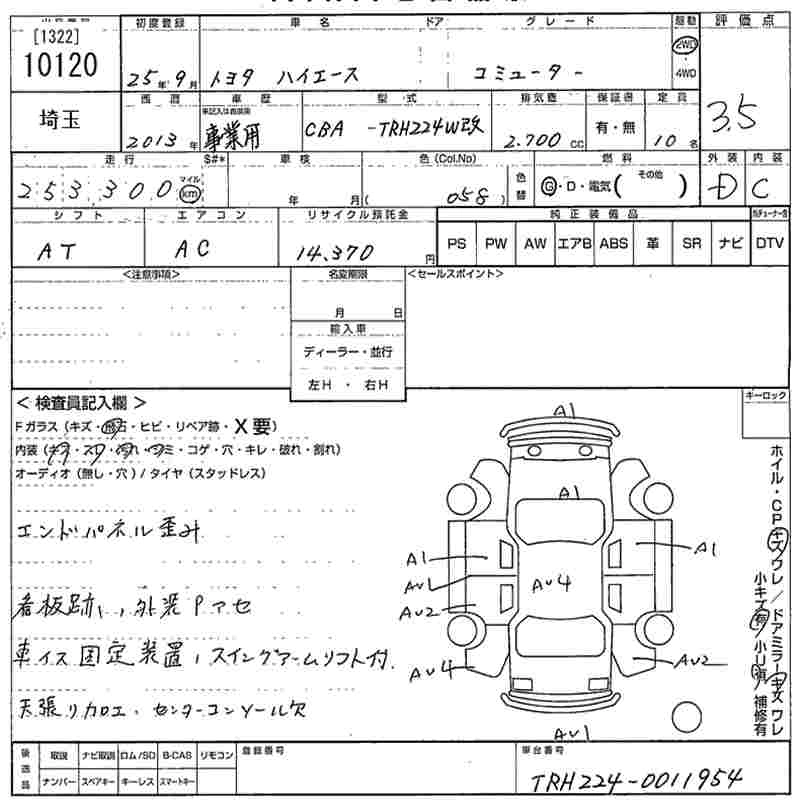 [1322]
10120
初度登録 車名 ドア グレード 駆動 評価点
25年9月 トヨタ ハイエース コミューター 2WD・4WD 3.5
埼玉
西暦 車歴 型式 排気量 保証書 定員
2013年 事業用 CBA -TRH224W改 2.700cc 有・無 10名
走行 S#* 車検 色(Col.No) 燃料 外装 内装
253,300 マイル km 年 月 ( 058 ) 色替 G・D・電気( その他 ) D C
シフト エアコン リサイクル預託金 純正装備品
AT AC 14,370円 PS PW AW エアB ABS 革 SR ナビ DTV
<注意事項> 名変期限 <セールスポイント>
月 日
輸入車
ディーラー・並行
左H ・ 右H
< 検査員記入欄 > キーロック
Fガラス(キズ・飛石・ヒビ・リペア跡・X要)
内装(キズ・スレ・汚れ・シミ・コゲ・穴・キレ・破れ・割れ)
オーディオ(無し・穴)/タイヤ(スタッドレス)
エンドパネル歪み
看板跡、外装Pアセ
車イス固定装置、スイングアームリフト付
天張リカロエ、センターコンソール欠
A1
A1
A1 A1
AU1 AU4
AU2
AU4 AU2
AU1
ホイル・CPキズワレ/ドアミラーキズワレ
小キズ有 小凹有 補修有
後送品 取説 ナビ取説 ロム/SD B-CAS リモコン 登録番号 車台番号
ナンバー スペアキー キーレス スマートキー TRH224-0011954